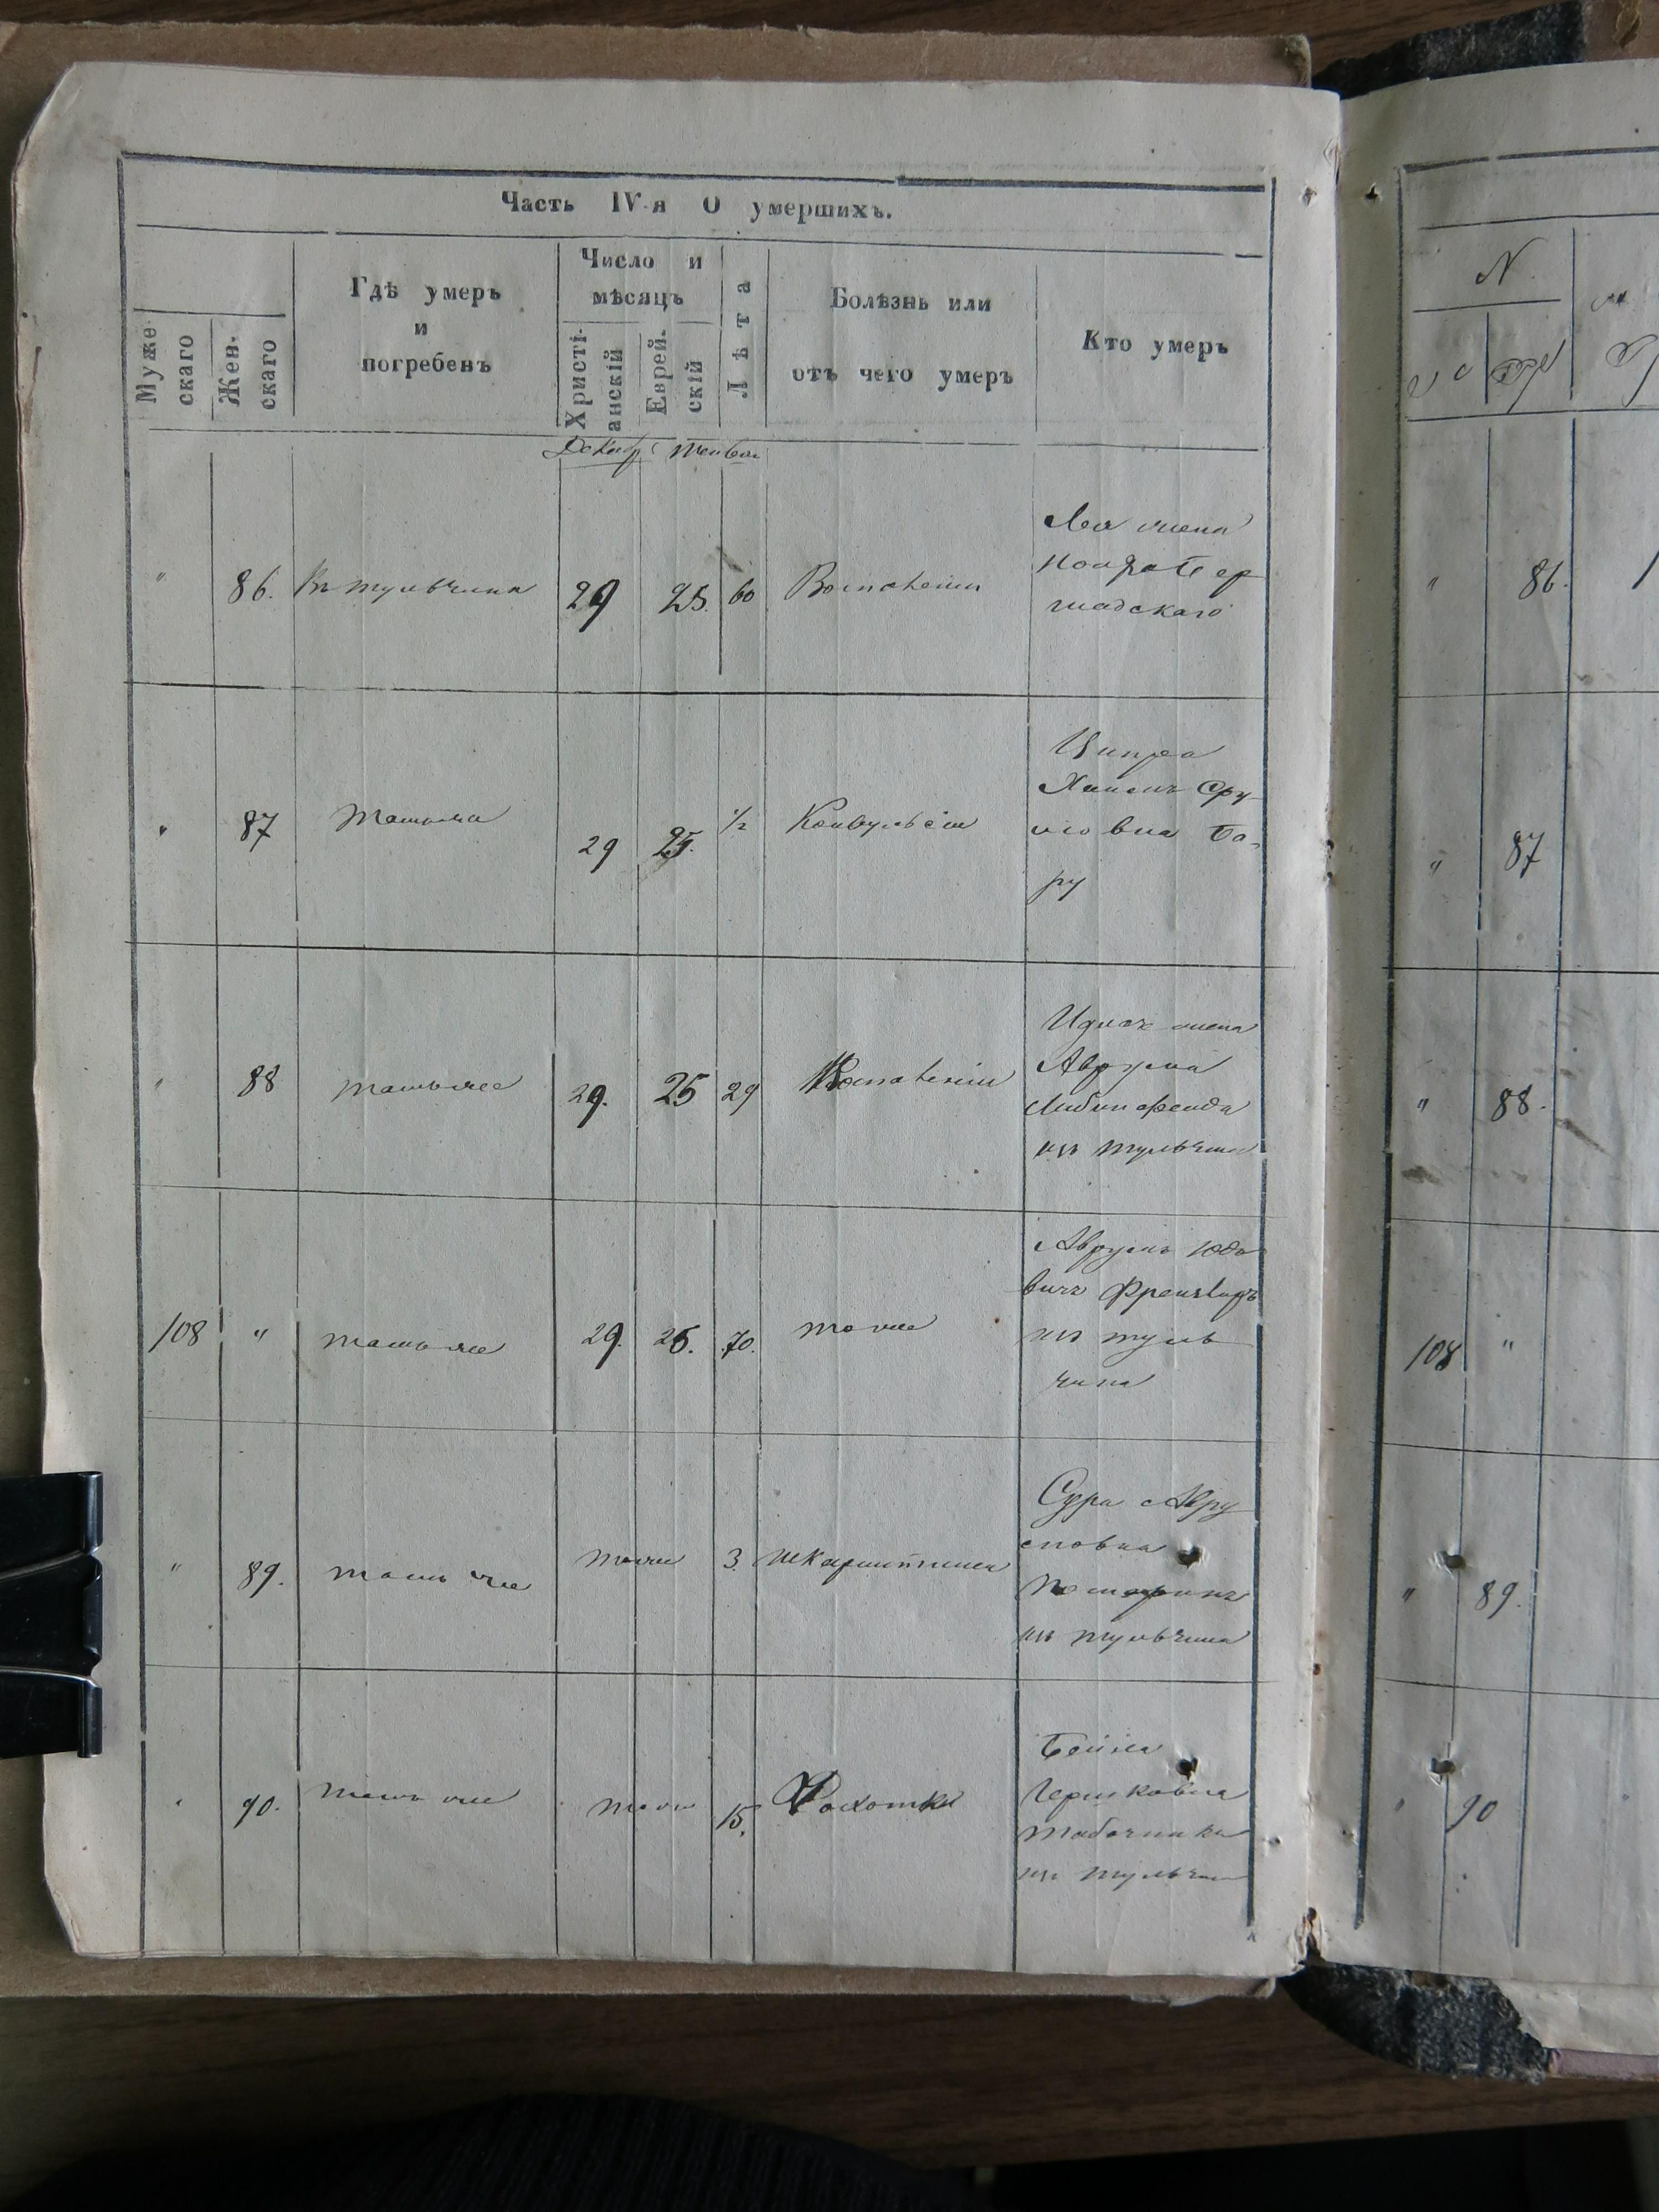 Часть IV-я О умершихъ.
Муже
скаго
Жен.
скаго
Гдѣ умеръ
и
погребенъ
Число и
мѣсяцъ
Христі-
анскій
Еврей-
скій
Лѣта
Болѣзнь или
отъ чего умеръ
Кто умеръ
Декабр
" 86. Въ тульчина 29 25. 60 Воспаленіи
Лея жена
шадскаго
" 87 тамъже 29 25. 1/2 Конвульсіи
Ципра
Сру
ловна Ба-
ру
" 88 тамъже 29. 25 29 Воспаленіи
жена
Аврума
изъ тульчина
108 " тамъже 29. 25. 70. тоже
Аврумъ Юдо
вичъ
изъ туль
чина
" 89. тамъ же тоже 3. шкарлатина
Сура
изъ тульчина
" 90. тамъ же тоже 15. Чохотки
Бейла
Гершковна
табачника
изъ тульчин
N
" 86.
" 87
" 88.
108 "
" 89.
" 90